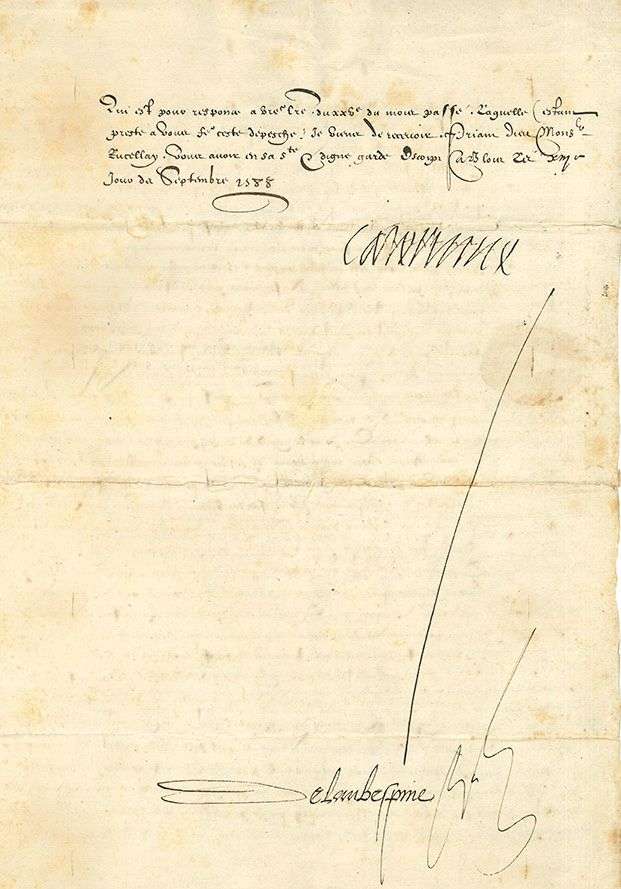 Qui est pour response a vre lre du xxve du mois passé. Laquelle estant
preste a vous fe ceste depesche Je viens de recevoir. Priant Dieu Monsr
Rucellay. Vous avoir en sa ste & digne garde Escript A Blois Le xiije
Jour de Septembre 1588
Caterine
Delaubespine